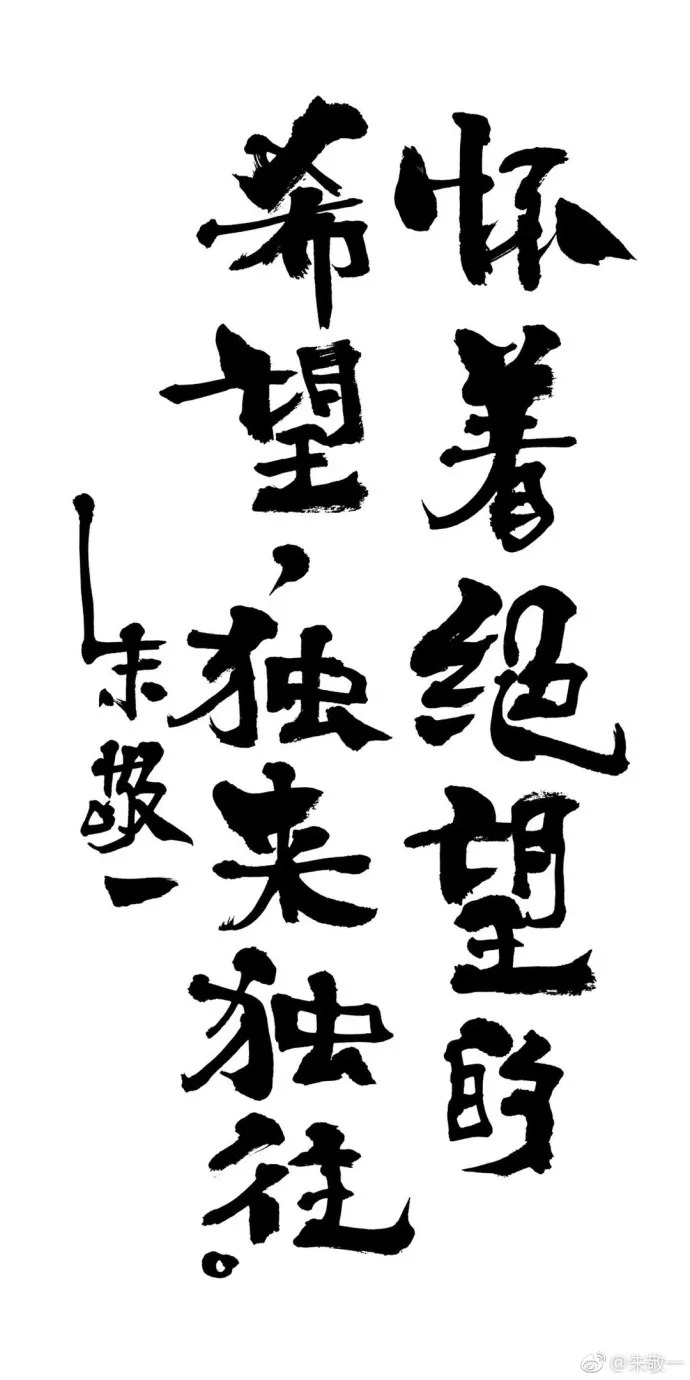 怀着绝望的
希望，独来独往。
朱敬一
@朱敬一